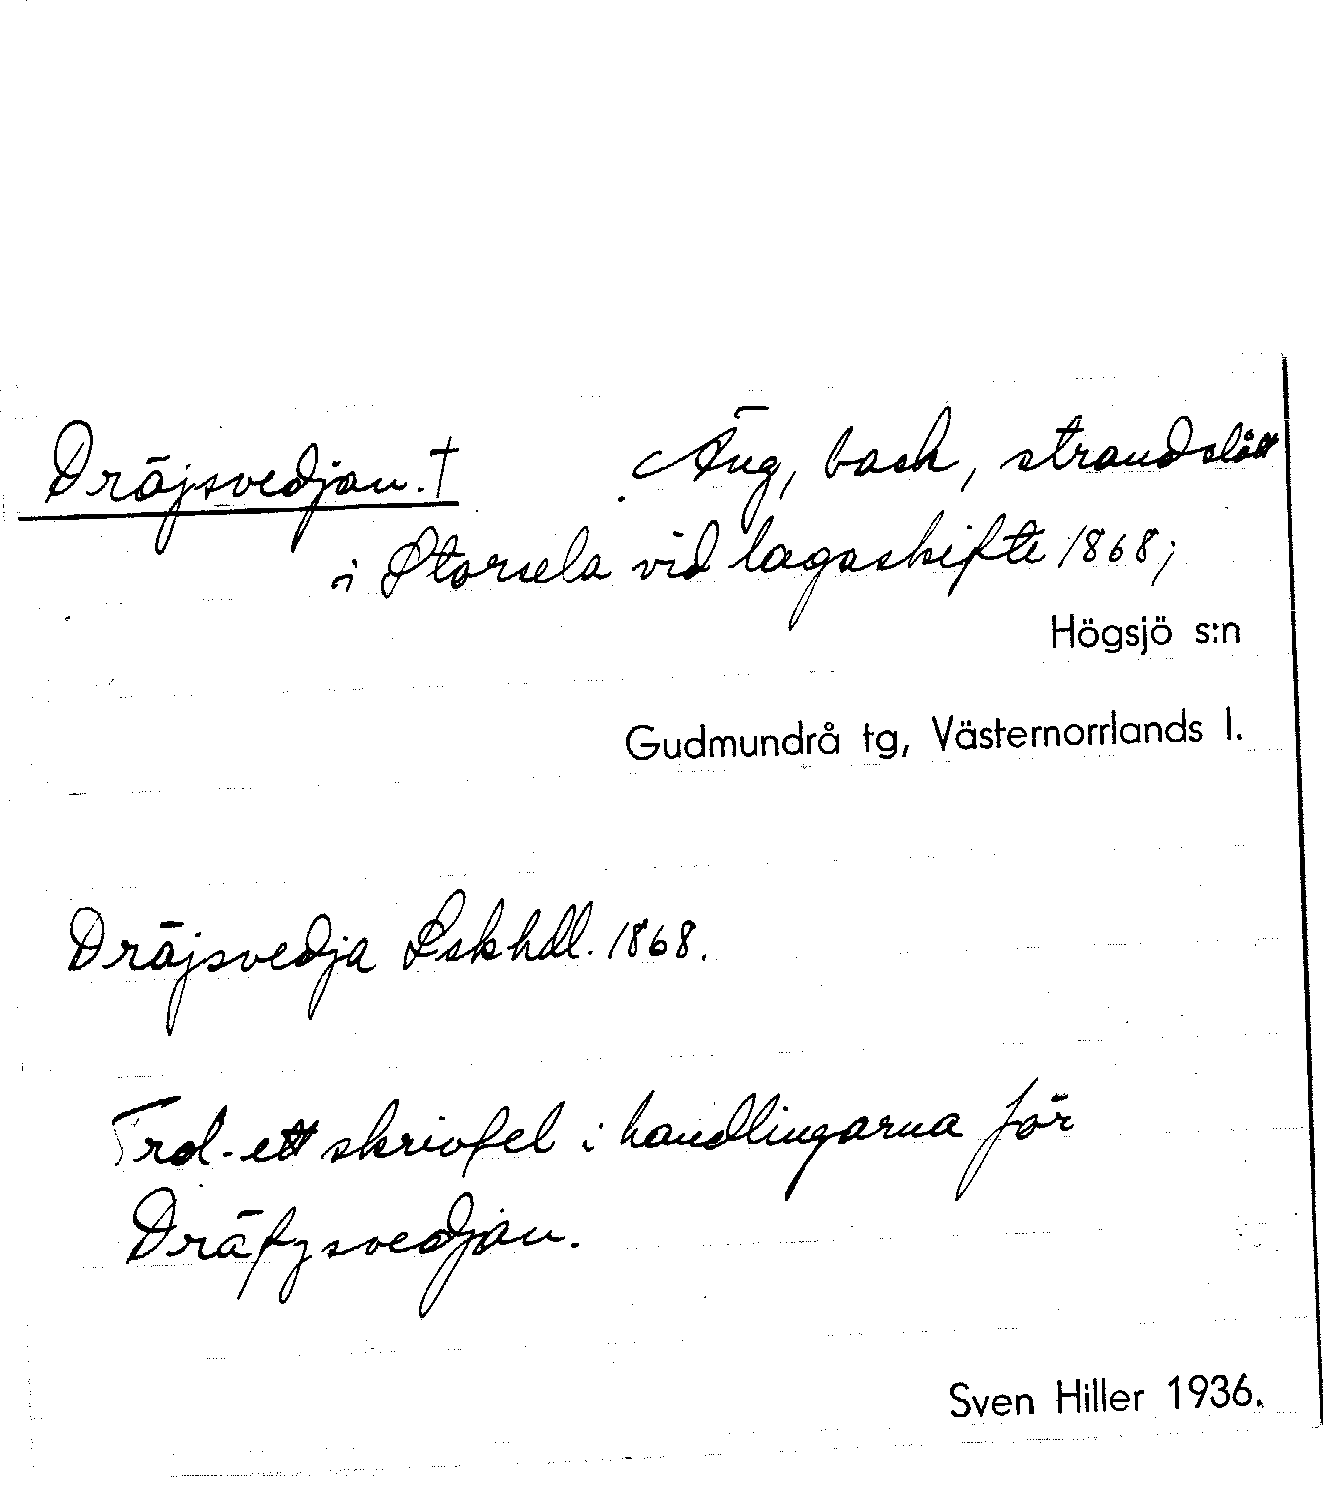 Dräjsvedjan. † Äng, back, strandslått
i Storsela vid lagaskifte 1868;
Högsjö s:n
Gudmundrå tg, Västernorrlands l.
Dräjsvedja Lskhdl. 1868.
Trol. ett skrivfel i handlingarna för
Dräfysvedjan.
Sven Hiller 1936.